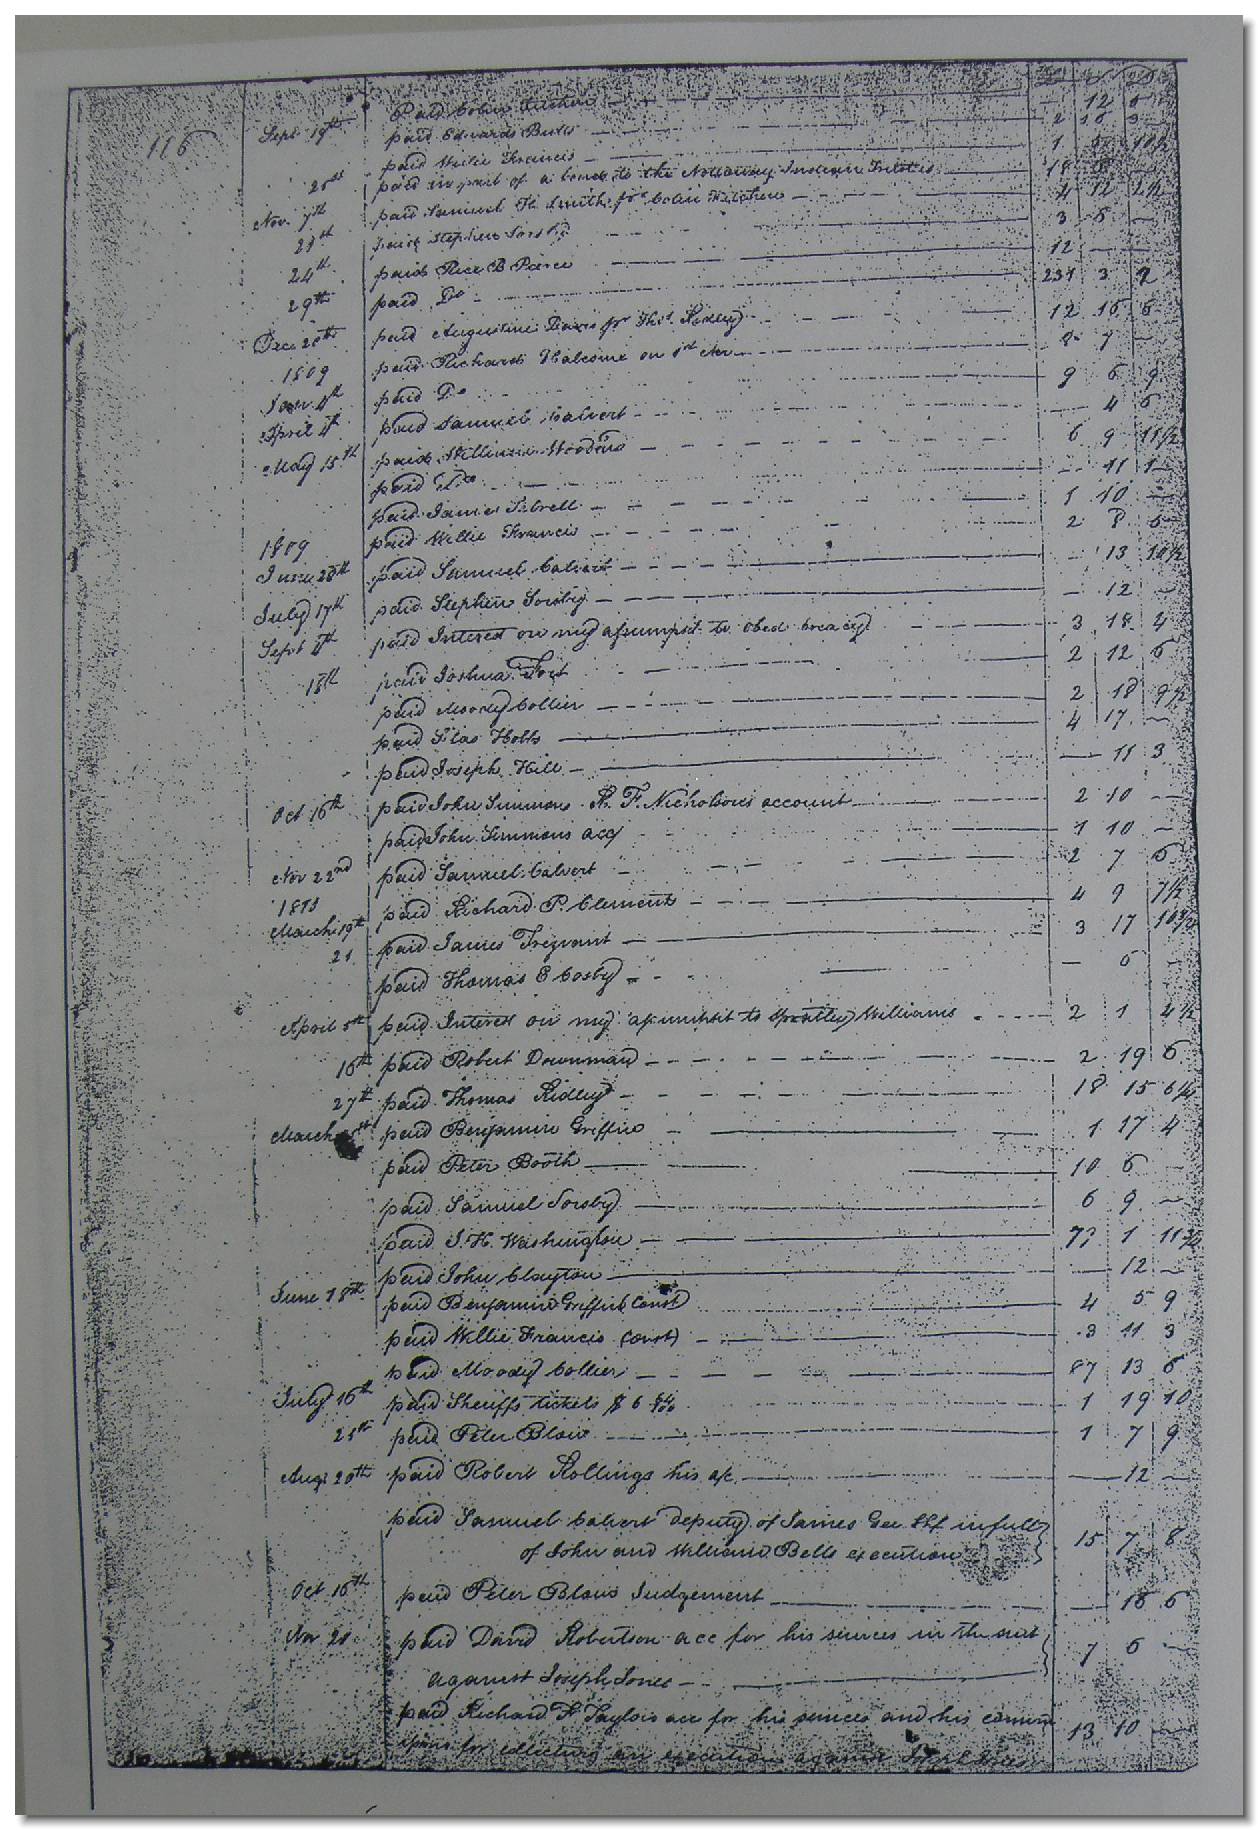 116
Paid Colin Kitchen - 12
Sept 19th paid Edwards Butts 2
paid Willie Francis 1
paid in part of a bond to the Nottoway Indian
Nov. 7th paid Samuel H. Smith for Colin Kitchen 4 12
21st paid Stephen Sorsby 3 6
24th paid Rice B Pierce 12 — —
29th paid Do 3
Dec 20th paid Augustine Davis for Thos. Ridley 12 6
1809 paid Richard Halcome on
Jany. 4th paid Do 9 6 9
April 4th paid Samuel Calvert — 4 6
May 15th paid Woodard 6 9 11½
paid Do — 11
paid James Sebrell 1 10 —
1809 paid Willie Francis 2 8
June 28th paid Samuel Calvert — 13 10½
July 17th paid Stephen Sorsby — 12 —
Sept 4th paid Interest on my assumpsit to Obed 3 18 4
18th paid Joshua Fort 2 12 6
paid Moody Collier 2 18 9½
paid Silas Holts 4 17 —
paid Joseph Hill — 11 3
Oct 16th paid John Simmons F. Nicholsons account 2 10 —
paid John Simmons acc 1 10 —
Nov 22nd paid Samuel Calvert 2 7 6
paid Richard P. Clements 4 9 7½
March 19th
21 paid James Trezvant 3 17
paid Thomas E Cosby — 6 —
April paid Interest on my assumpsit to Williams 2 1 4½
16th paid Robert Downman 2 19 6
27th paid Thomas Ridley 18 15 6¼
March paid Benjamin Griffin 1 17 4
paid Peter Booth 10 6
paid Samuel Sorsby 6 9 —
paid J. H. Washington 1 11¾
paid John Clayton — 12 —
June 18th paid Benjamin Griffin Const 4 5 9
paid Willie Francis Const 3 11 3
paid Moody Collier 87 13 6
July 16th paid Sheriffs tickets $ 6 1 19 10
25th paid Peter Blow 1 7 9
Aug. 20th paid Robert Rollings his a/c — 12 —
paid Samuel Calvert deputy of James Gee in full
of John and William Bells execution 15 7 8
Oct 16th paid Peter Blows Judgement 6
Nov 20 paid David Robertson acc for his services in the suit
against Joseph Jones 7 6 —
paid Richard Taylors acc for his services and his comm
for an execution against 13 10 —